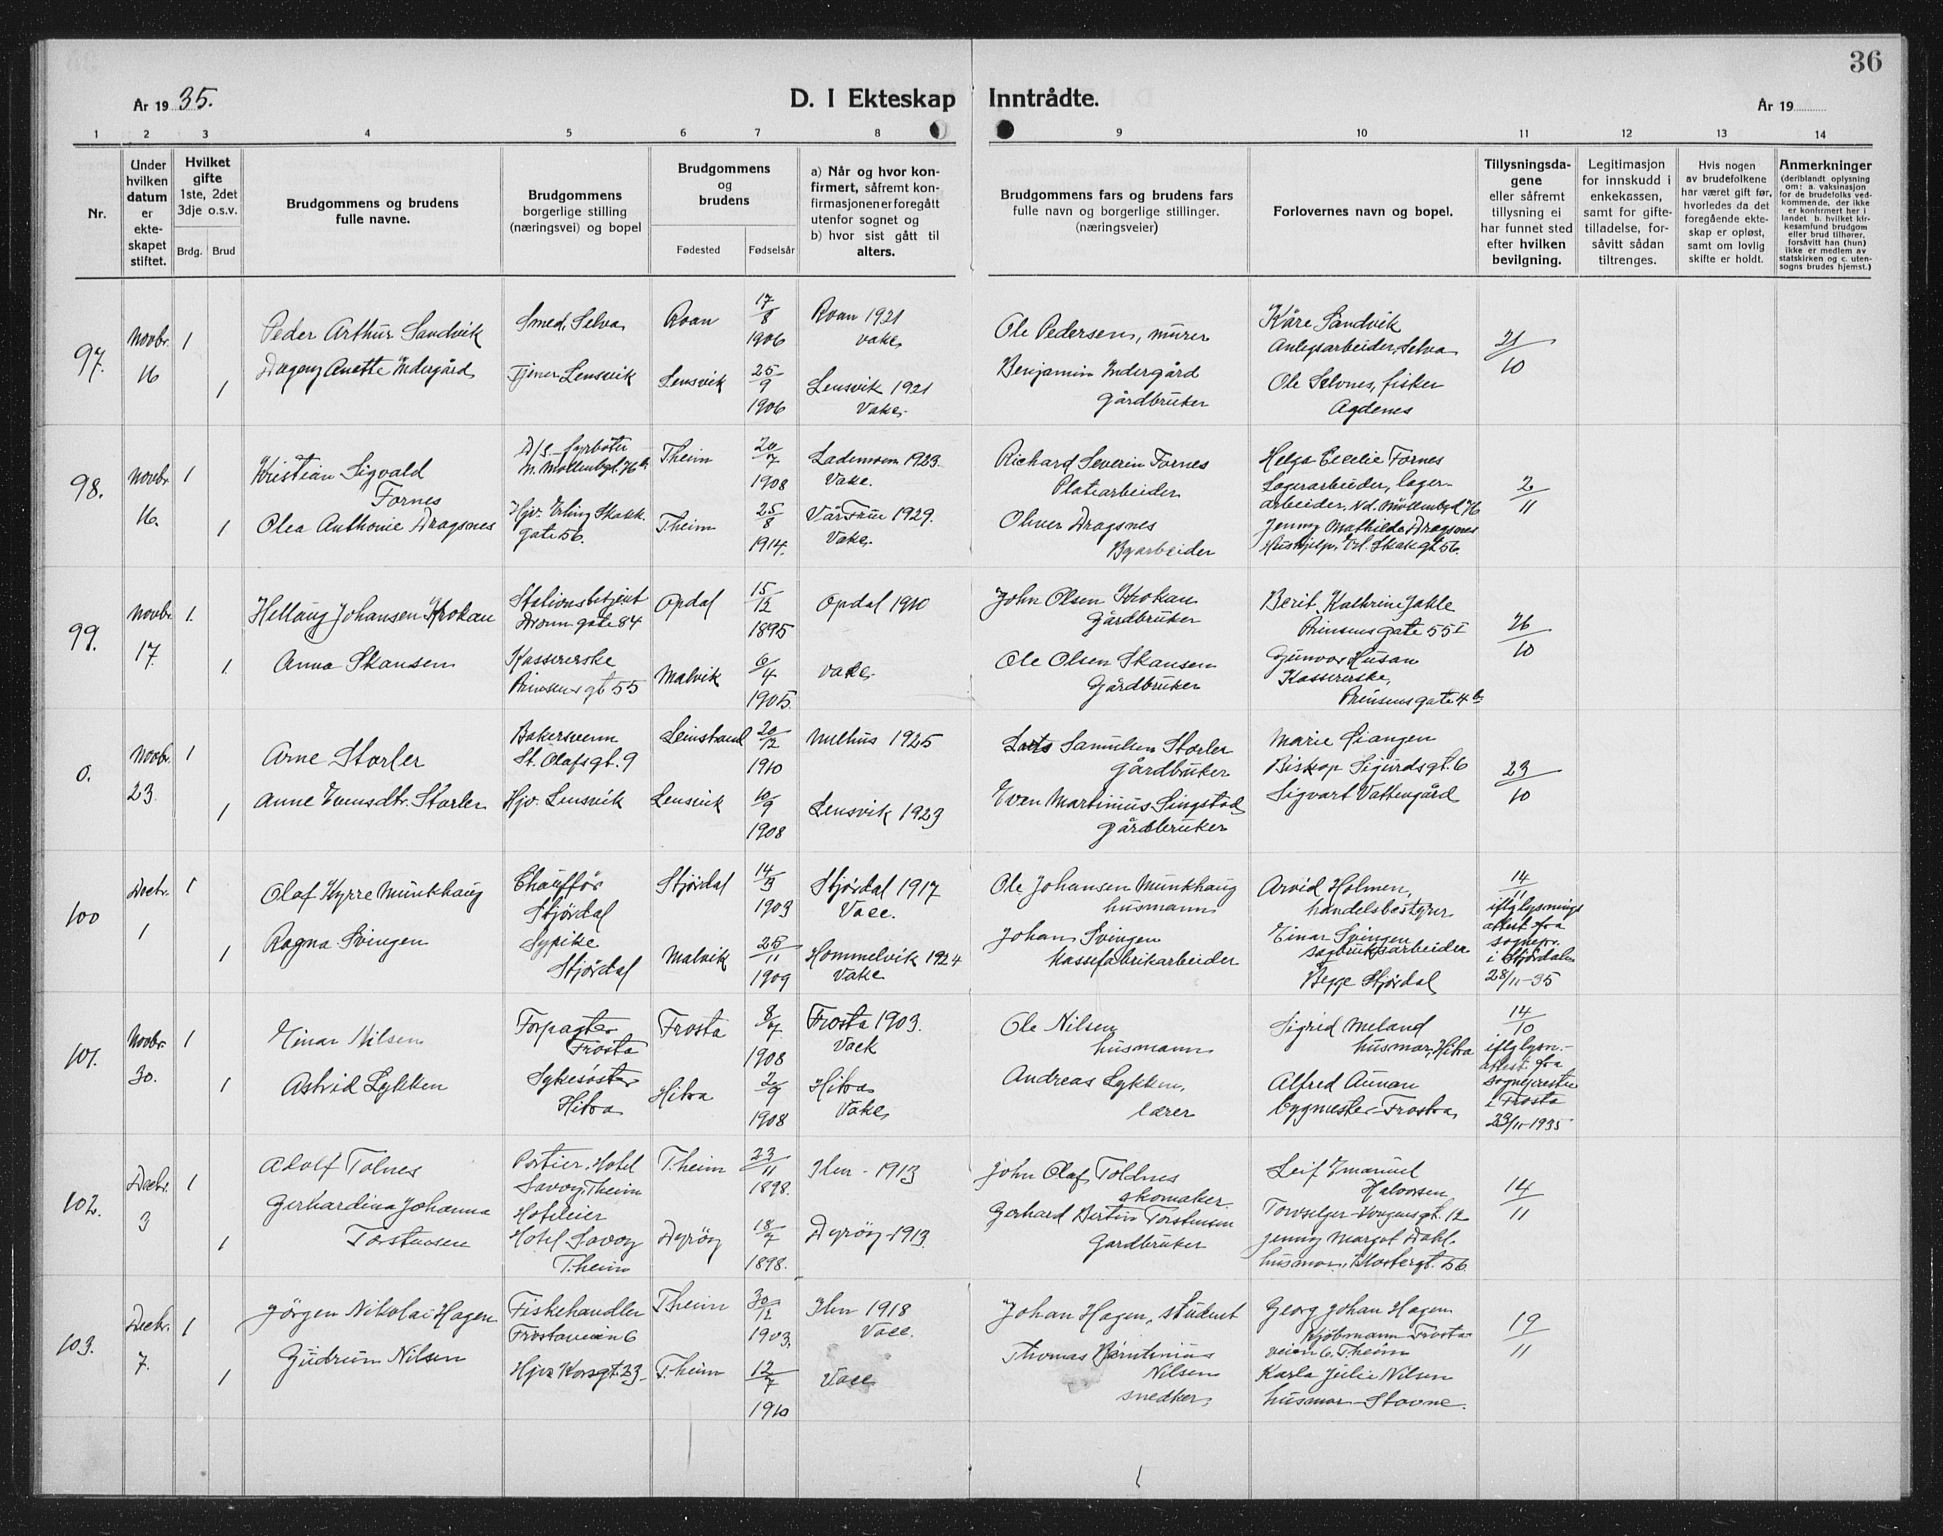 36
År 1935.
D. I Ekteskap Inntrådte.
År 19
1 2 3 4 5 6 7 8 9 10 11 12 13 14
Nr.
Under hvilken datum er ekteskapet stiftet.
Hvilket gifte 1ste, 2det 3dje o.s.v.
Brdg. Brud
Brudgommens og brudens fulle navne.
Brudgommens borgerlige stilling (næringsvei) og bopel
Brudgommens og brudens
Fødested Fødselsår
a) Når og hvor konfirmert, såfremt konfirmasjonen er foregått utenfor sognet og b) hvor sist gått til alters.
Brudgommens fars og brudens fars fulle navn og borgerlige stillinger. (næringsveier)
Forlovernes navn og bopel.
Tillysningsdagene eller såfremt tillysning ei har funnet sted efter hvilken bevilgning.
Legitimasjon for innskudd i enkekassen, samt for giftetilladelse, forsåvitt sådan tiltrenges.
Hvis nogen av brudefolkene har været gift før, hvorledes da det foregående ekteskap er opløst, samt om lovlig skifte er holdt.
Anmerkninger (deriblandt oplysning om: a. vaksinasjon for de brudefolks vedkommende, der ikke er konfirmert her i landet b. hvilket kirkesamfund brudgom eller brud tilhører, forsåvitt han (hun) ikke er medlem av statskirken og c. utensogns brudes hjemst.)
97. Novbr. 16 1 Peder Arthur Sandvik Smed, Selva Roan 17/8 1906 Roan 1921 Vake Ole Pedersen, murer Kåre Sandvik Anlegsarbeider, Selva 21/10
1 Dagny Anette Indergård Tjener Lensvik Lensvik 25/9 1906 Lensvik 1921 Vake Benjamin Indergård gårdbruker Ole Selvnes, fisker Agdenes
98. Novbr. 16. 1 Kristian Sigvald Fornes D/S. fyrbøter N. Møllenbgt. 76 b. Theim 20/7 1908 Lademoen 1923. Vake. Richard Severin Fornes Platearbeider Helga Cecilie Fornes Lagerarbeider, lagerarbeider, Nd. Møllenbgd 76 2/11
1 Olea Anthonie Dragsnes Hjv. Erling Skakk. gate 56. Theim 25/8 1914. Vår Frue 1929. Vake. Oliver Dragsnes Byarbeider Jenny Mathilde Dragsnes Hushjelp, Erl. Skak gt 56.
99. Novbr. 17. 1. Hellaug Johansen Krokan Stationsbetjent Dronn gate 84 Opdal 15/12 1895 Opdal 1910 John Olsen Krokan Gårdbruker Berit Kathrine Jahle Prinsens gate 55 I 26/10
1. Anna Skansen Kassererske Prinsens gt 55 Malvik 6/4 1905. Vake. Ole Olsen Skansen Gårdbruker Gunvor Husan Kassererske, Prinsens gate 4 b
0. Novbr. 23. 1 Arne Storler Bakersvenn St. Olafsgt. 9 Leinstrand 20/12 1910 Melhus 1925 Lars Samuelsen Storler gårdbruker Marie Giangen Biskop Sigurdsgt. 6 23/10
1 Anne Evensdtr. Storler Hjv. Lensvik Lensvik 10/9 1908 Lensvik 1923 Even Martinius Singstad gårdbruker Sigvart Vattengård
100 Decbr. 1 1 Olaf Kyrre Munkhaug Chauffør Stjørdal Stjørdal 14/9 1903 Stjørdal 1917 Vace. Ole Johansen Munkhaug husmann Arvid Holmen, handelsbestyrer 14/11 iflg lysnings attest fra sognepr. i Stjørdalen 28/11-35
1 Ragna Svingen Sypike Stjørdal Malvik 25/11 1909 Hommelvik 1924 Vake Johan Svingen Massefabrikarbeider Einar Svingen sagbruksarbeider Begge Stjørdal
101. Novbr. 30. 1 Einar Nilsen Forpagter Frosta Frosta 8/7 1908 Frosta 1903. Vack Ole Nilsen husmann Sigrid Meland husmor, Hitra 14/10 iflg lysn.- attest fra sognepresten i Frosta 23/11-1935
1 Astrid Lykken Sykesøster Hitra Hitra 2/9 1908 Hitra Vake Andreas Lykken, lærer Alfred Aunan bygmester Frosta
102. Decbr. 3 1 Adolf Tolnes Portier. Hotel Savoy, Theim T.heim 23/11 1898. Ilen - 1913 John Olaf Toldnes skomaker. Leif Emanuel Halvorsen Torvselger - Kongensgt. 12 14/11
1 Gerhardina Johanna Torstensen Hoteleier Hotel Savoy T.heim Dyrøy 18/7 1898. Dyrøy 1913. Gerhard Bertin Torstensen Gardbruker Jenny Margot Dahl. husmor. Klostergt. 56
103. Decbr. 7. 1 Jørgen Nikolai Hagen Fiskehandler Frostaveien 6 T.heim 30/12 1903. Ilen 1918 Vace. Johan Hagen, student Georg Johan Hagen Kjøbmann Frostaveien 6. T.heim 19/11
1 Gudrun Nilsen Hjv. Korsgt. 23 T.heim 12/7 1910 Vace Thomas Berntinius Nilsen snedker, Karla Julie Nilsen husmor - Stavne.